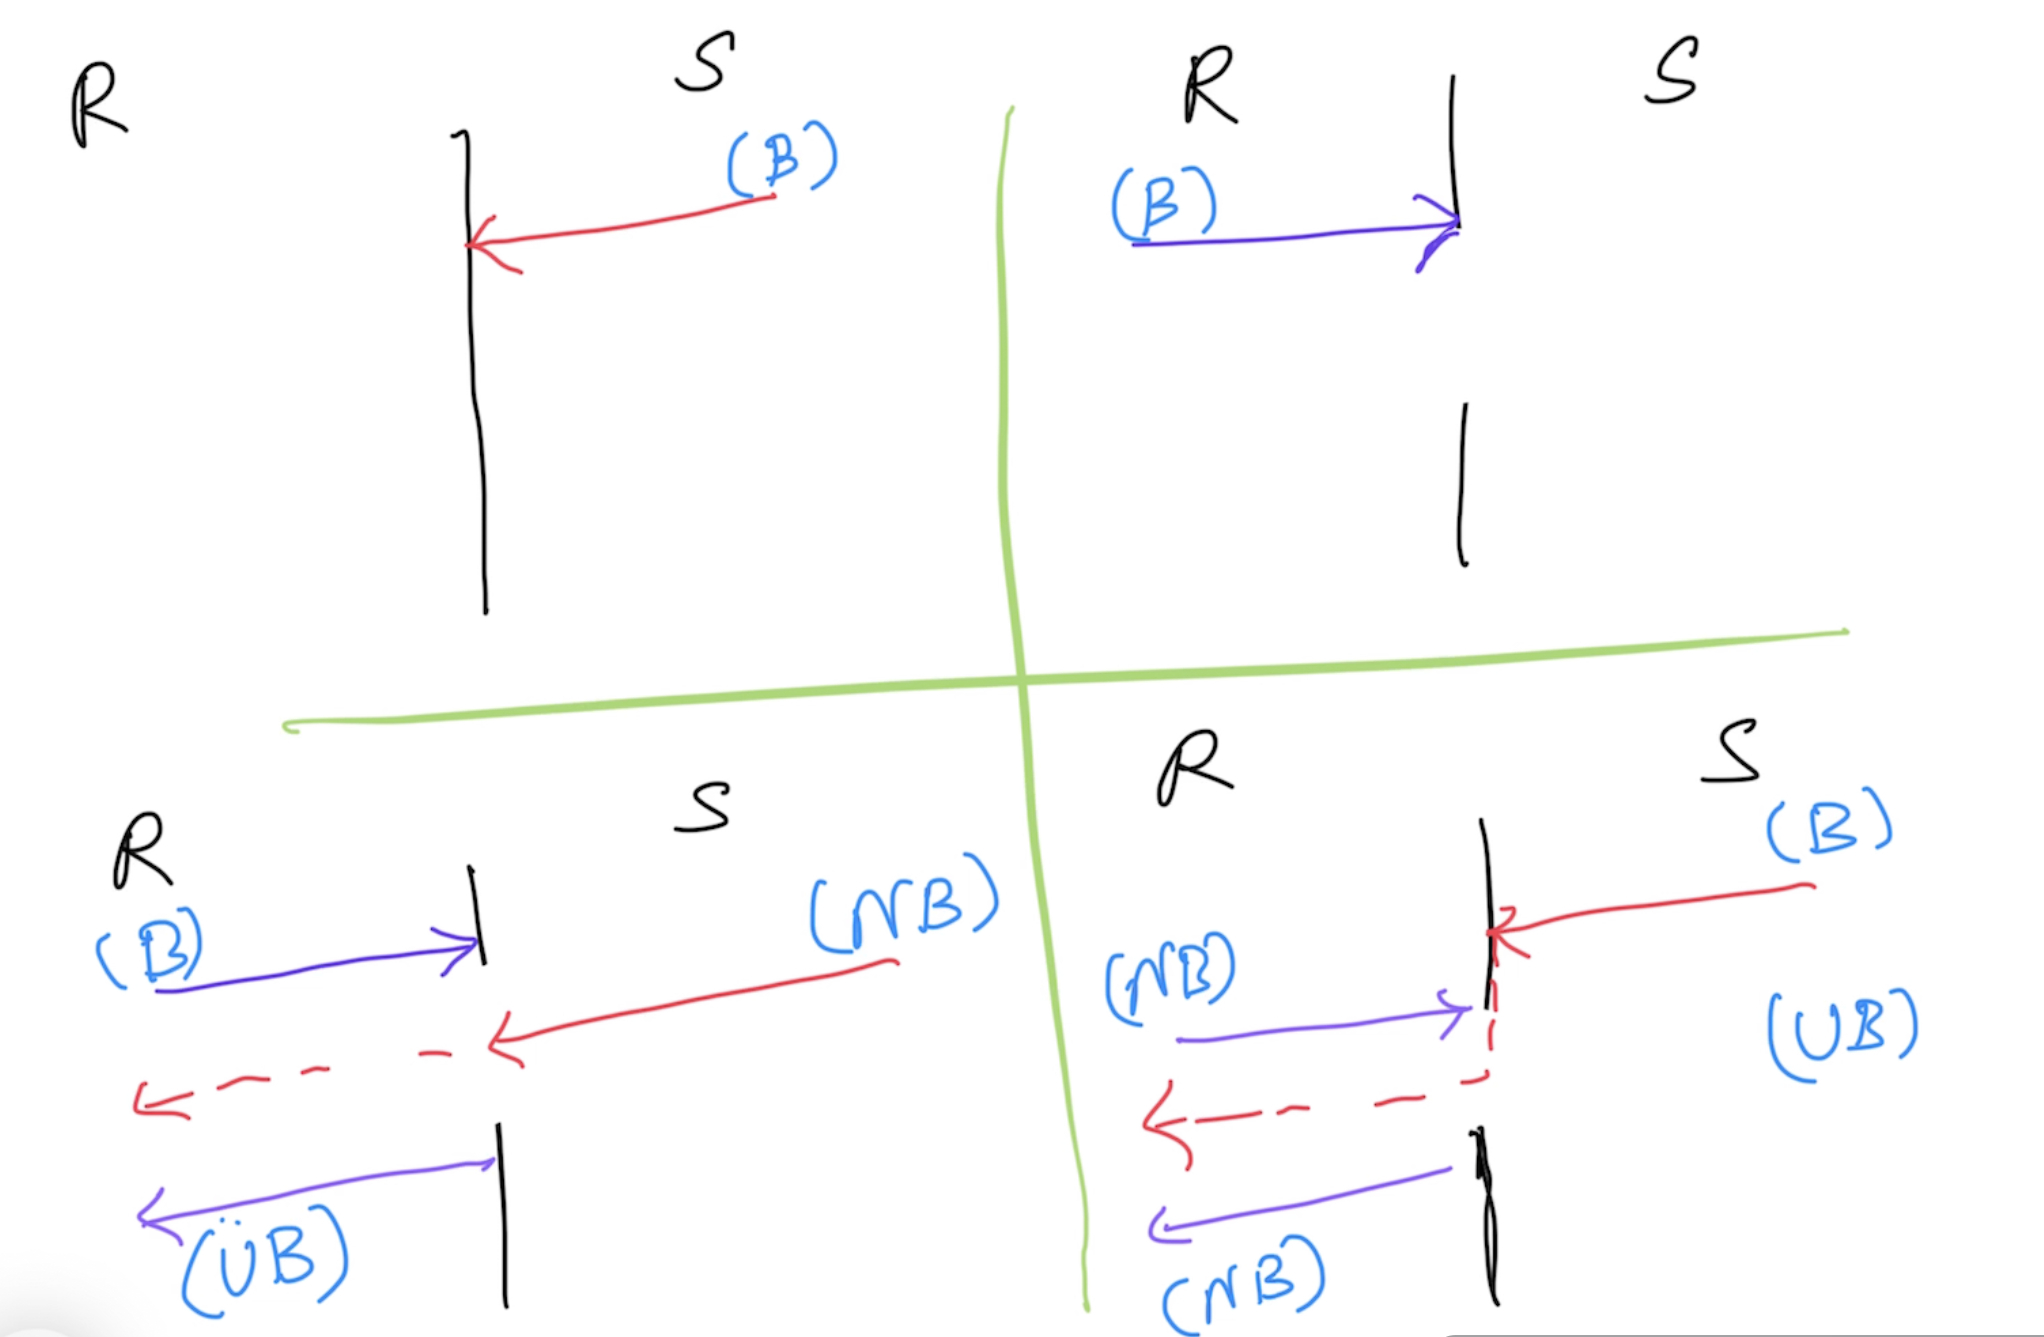 R S
(B)
R S
(B)
R S
(B) (NB)
(ÜB)
R S
(B)
(NB)
(UB)
(NB)